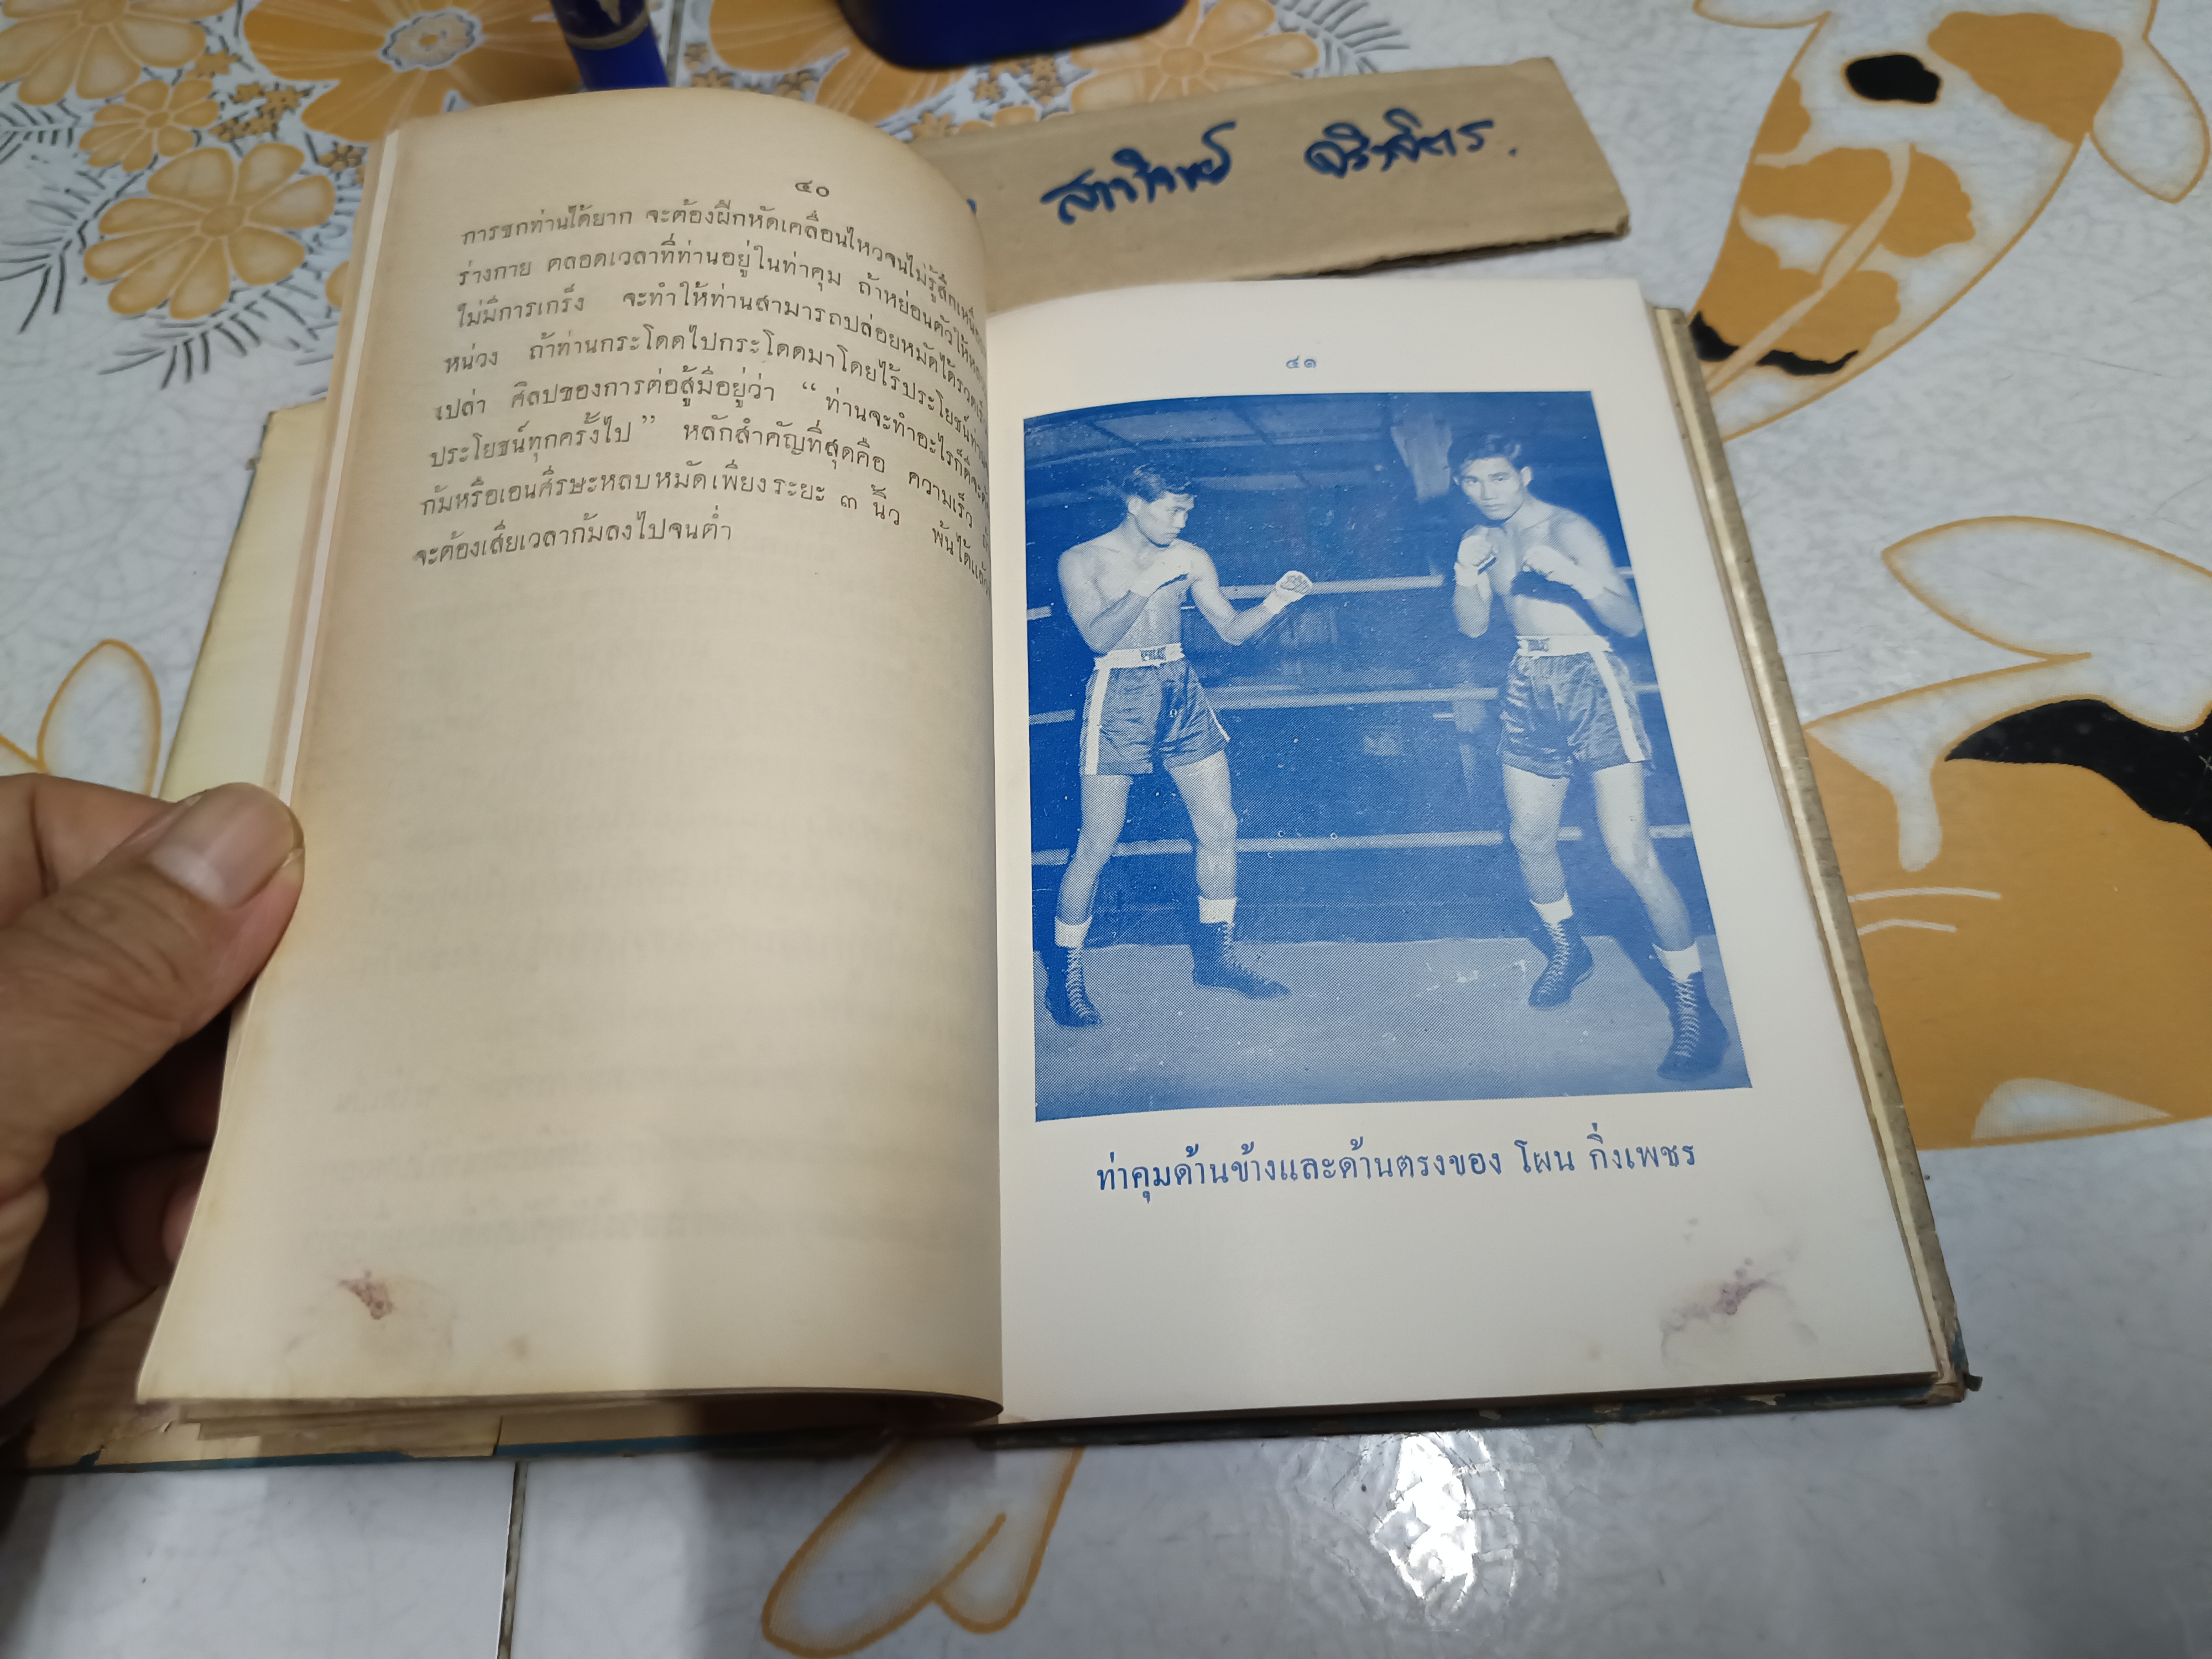 สาทิพย์
๔๐
การชกท่านได้ยาก จะต้องฝึกหัดเคลื่อนไหวจนไม่รู้สึก
ร่างกาย ตลอดเวลาที่ท่านอยู่ในท่าคุม ถ้าหย่อนตัวให้
ไม่มีการเกร็ง จะทำให้ท่านสามารถปล่อยหมัดได้รวดเร็ว
หน่วง ถ้าท่านกระโดดไปกระโดดมาโดยไร้ประโยชน์
เปล่า ศิลปของการต่อสู้มีอยู่ว่า “ ท่านจะทำอะไรก็ดี
ประโยชน์ทุกครั้งไป ” หลักสำคัญที่สุดคือ ความเร็ว
ก้มหรือเอนศีรษะหลบหมัดเพียงระยะ ๓ นิ้ว พ้นได้แล้ว
จะต้องเสียเวลาก้มลงไปจนต่ำ
๔๑
ท่าคุมด้านข้างและด้านตรงของ โผน กิ่งเพชร